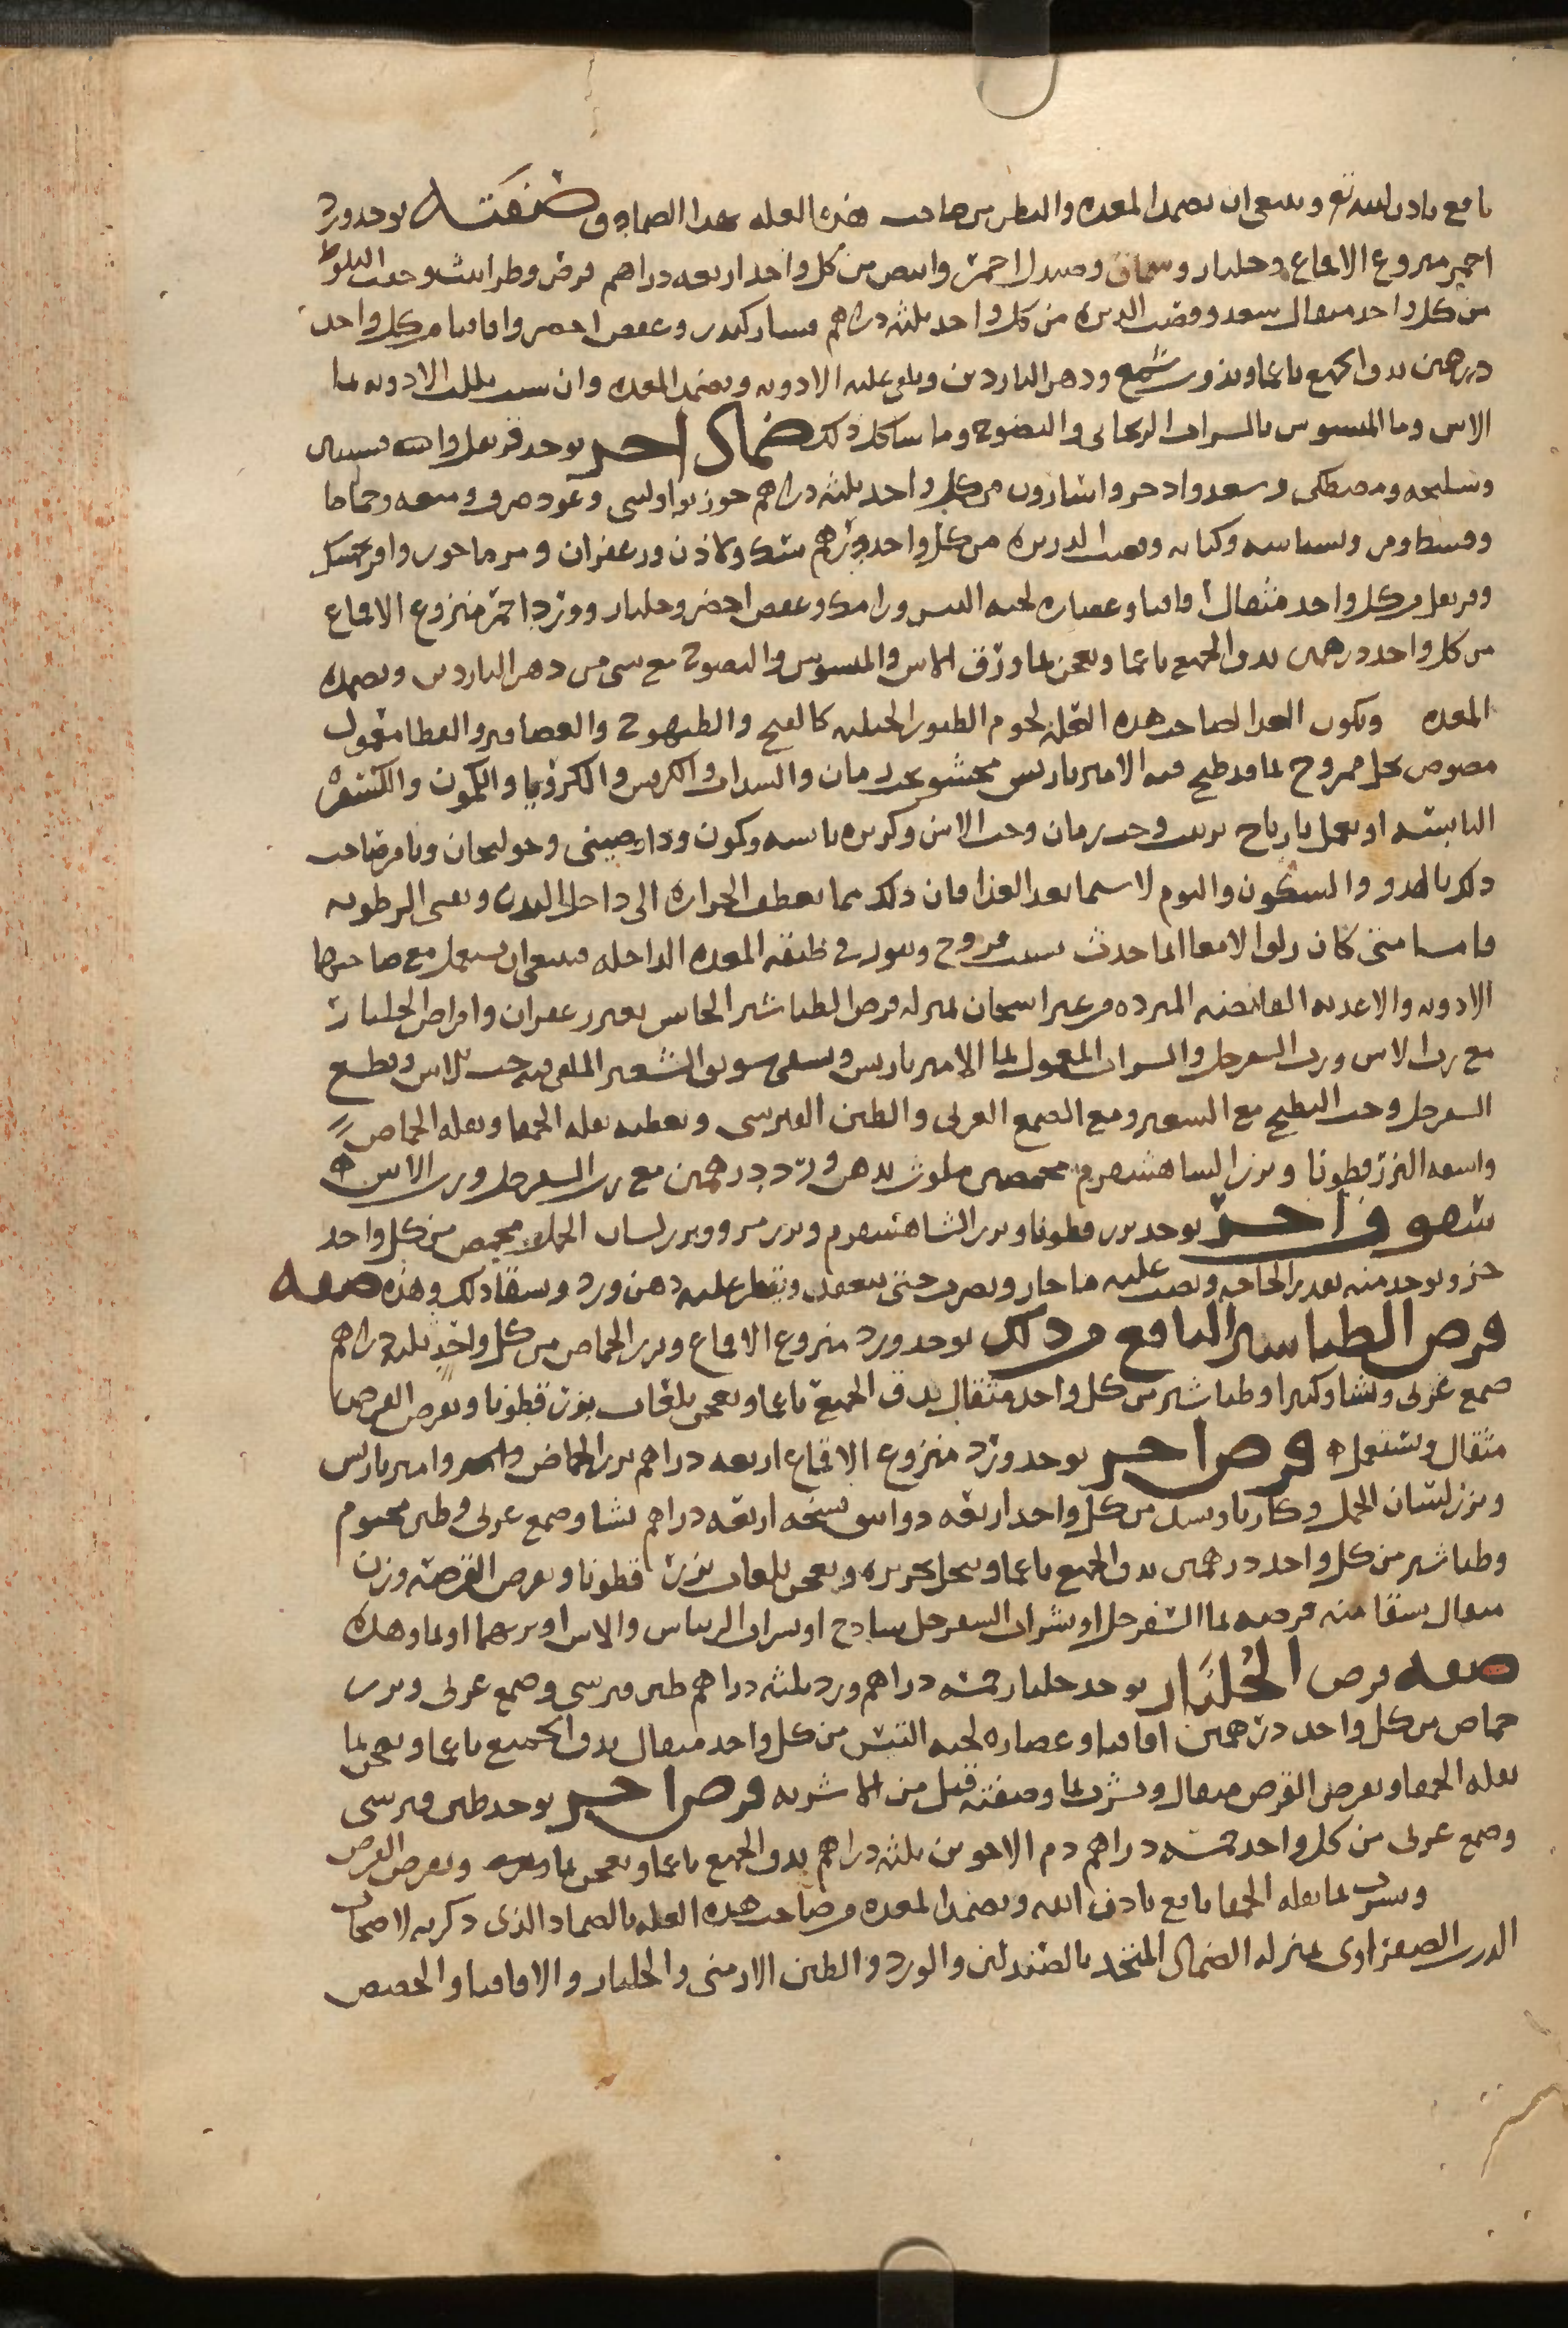 نافع باذن الله تع وينبغى ان تضمد المعده والبطن من صاحب هذه العله بهذا الضماد وصفته يوخذ ورد
احمر منزوع الاقماع وجلنار وسماق وصندل احمر وابيض من كل واحد اربعه دراهم قرض وطراثيث وجفت البلوط
من كل واحد مثقال سعد وقصب الذريره من كل واحد ثلثه دراهم مسك كندر وعفص اخضر واقاقيا من كل واحد
درهمين يدق الجميع ناعما ويذوب شمع ودهن الناردين ويلقى عليه الادويه ويضمد المعده وان شيت بللت الادويه بما
الاس وما الميسوس بالشراب الريحانى والنضوح وما شاكل ذلك ضماد اخر يوخذ قرنفل واشنه وسنبل
وسليخه ومصطكى وسعد واذخر واسارون من كل واحد ثلثه دراهم جوزبوا ولبنى وعود صرف وميعه وحماما
وقسط ومر وبسباسه وكبابه وقصب الذريره من كل واحد درهم سك ولاذن وزعفران ومرماحوز وافرنجمشك
وقرنفل من كل واحد مثقال اقاقيا وعصاره لحيه التيس ورامك وعفص اخضر وجلنار وورد احمر منزوع الاقماع
من كل واحد درهمين يدق الجميع ناعما ويعجن بما ورق الاس والميسوس والنضوح مع شى من دهن الناردين ويضمد به
المعده ويكون الغذا لصاحب هذه العله لحوم الطيور الجبليه كالقبج والطيهوج والعصافير والقطا معمول
مصوص بخل ممزوج بما قد طبخ فيه الامبرباريس محشو بحب رمان والسداب والكرفس والكرويا والكمون والكسفره
اليابسه او يعمل نارباج بزبيب وحب رمان وحب الاس وكزبره يابسه وكمون ودارصينى وخولنجان ويامر صاحب
ذلك بالهدو والسكون والنوم لا سيما بعد الغذا فان ذلك مما يعطف الحراره الى داخل البدن ويفنى الرطوبه
فاما متى كان زلق الامعا انما حدث بسبب قروح وبثور فى طبقه المعده الداخله فينبغى ان يستعمل مع صاحبها
الادويه والاغذيه القابضه المبرده من غير اسخان بمنزله قرص الطباشير الحابس بغير زعفران واقراص الجلنار
مع رب الاس ورب السفرجل والشراب المعمول بما الامبرباريس ويسقى سويق الشعير الملقى فيه حب الاس وقطع
السفرجل وحب البطيخ مع الشعير ومع الصمغ العربى والطين القبرسى ويعطيه بقله الحمقا وبقله الحماض
واسقه البزرقطونا وبزر الشاهسفرم محمصين ملوث بدهن ورد درهمين مع رب السفرجل ورب الاس ه
سفوف اخر يوخذ بزر قطونا وبزر الشاهسفرم وبزر مرو وبزر لسان الحمل محمص من كل واحد
جزو يوخذ منه بقدر الحاجه ويصب عليه ما حار ويضرب حتى ينعقد ويقطر عليه دهن ورد ويسقا ذلك وهذه صفه
قرص الطباشير النافع من ذلك يوخذ ورد منزوع الاقماع وبزر الحماض من كل واحد ثلثه دراهم
صمغ عربى ونشا وكثيرا وطباشير من كل واحد مثقال يدق الجميع ناعما ويعجن بلعاب بزرقطونا ويقرص القرص
مثقال ويستعمل ه قرص اخر يوخذ ورد منزوع الاقماع اربعه دراهم بزر الحماض وامبرباريس
وبزر لسان الحمل وكارباد من كل واحد اربعه دوانيق نسخه اربعه دراهم نشا وصمغ عربى وطين مختوم
وطباشير من كل واحد درهمين يدق الجميع ناعما وينخل بحريره ويعجن بلعاب بزر قطونا ويقرص القرصه وزن
مثقال يسقا منه قرصه بما السفرجل او بشراب السفرجل ساذج او شراب الريباس والاس او بربهما او بما وهذه
صفه قرص الجُلنَار يوخذ جلنار خمسه دراهم ورد ثلثه دراهم طين قبرسى وصمغ عربى وبزر
حماض من كل واحد درهمين اقاقيا وعصاره لحيه التيس من كل واحد مثقال يدق الجميع ناعما ويعجن بما
بقله الحمقا ويقرص القرص مثقال ويشرب بما وصفته قبل من الاشربه قرص اخر يوخذ طين قبرسى
وصمغ عربى من كل واحد خمسه دراهم دم الاخوين ثلثه دراهم يدق الجميع ناعما ويعجن بما ورد ويقرص القرص
ويشرب بما بقله الحمقا نافع باذن الله ويضمد المعده من صاحب هذه العله بالضماد الذى ذكرته لاصحاب
الذرب الصفراوى بمنزله الضماد المتخذ بالصندلين والورد والطين الارمنى والجلنار والاقاقيا والحضض